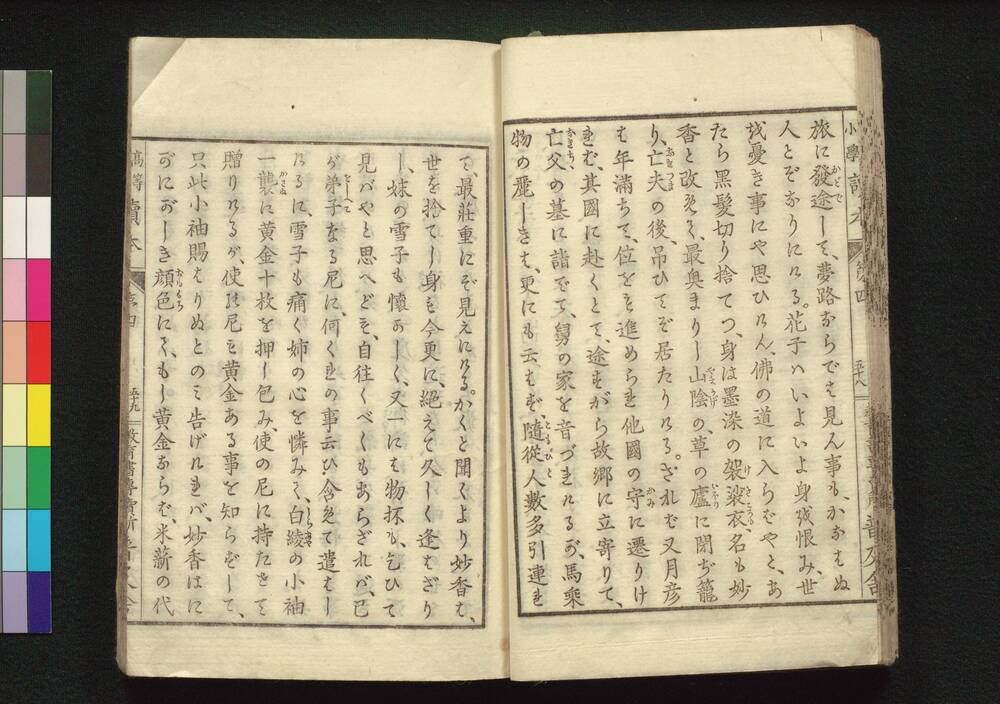 旅に發途して、夢路ならでは見ん事も、かなはぬ
人とぞなりにける。花子ハいよいよ身を恨み、世
を憂き事にや思ひけん、佛の道に入らばやと、あ
たら黒髪切り捨てつ、身は墨染の袈裟衣、名も妙
香と改めて、最奥まりし山陰の、草の廬に閉ぢ籠
り、亡夫の後、吊ひてぞ居たりける。されば又月彦
は年滿ちて、位をも進められ他國の守に遷りけ
れば、其國に赴くとて、途すがら故郷に立寄りて、
亡父の墓に詣でて、舅の家を音づれけるが、馬乘
物の麗しきは、更にも云はず、隨從人數多引連れ
て、最莊重にぞ見えにける。かくと聞くより妙香は、
世を捨てし身も今更に、絶えて久しく逢はざり
し、妹の雪子も懷かしく、又一には物抔も、乞ひて
見バやと思へども、自往くべくもあらざれバ、己
が弟子なる尼に、何くれの事云ひ含めて遣はし
けるに、雪子も痛く姉の心を憐みて、白綾の小袖
一襲に黄金十枚を押し包み、使の尼に持たせて
贈りけるが、使れ尼も黄金ある事を知らずして、
只此小袖賜はりぬとのミ告げけれバ、妙香はに
がにがしき顔色にて、もし黄金ならば、米薪の代
高等讀本
五十九